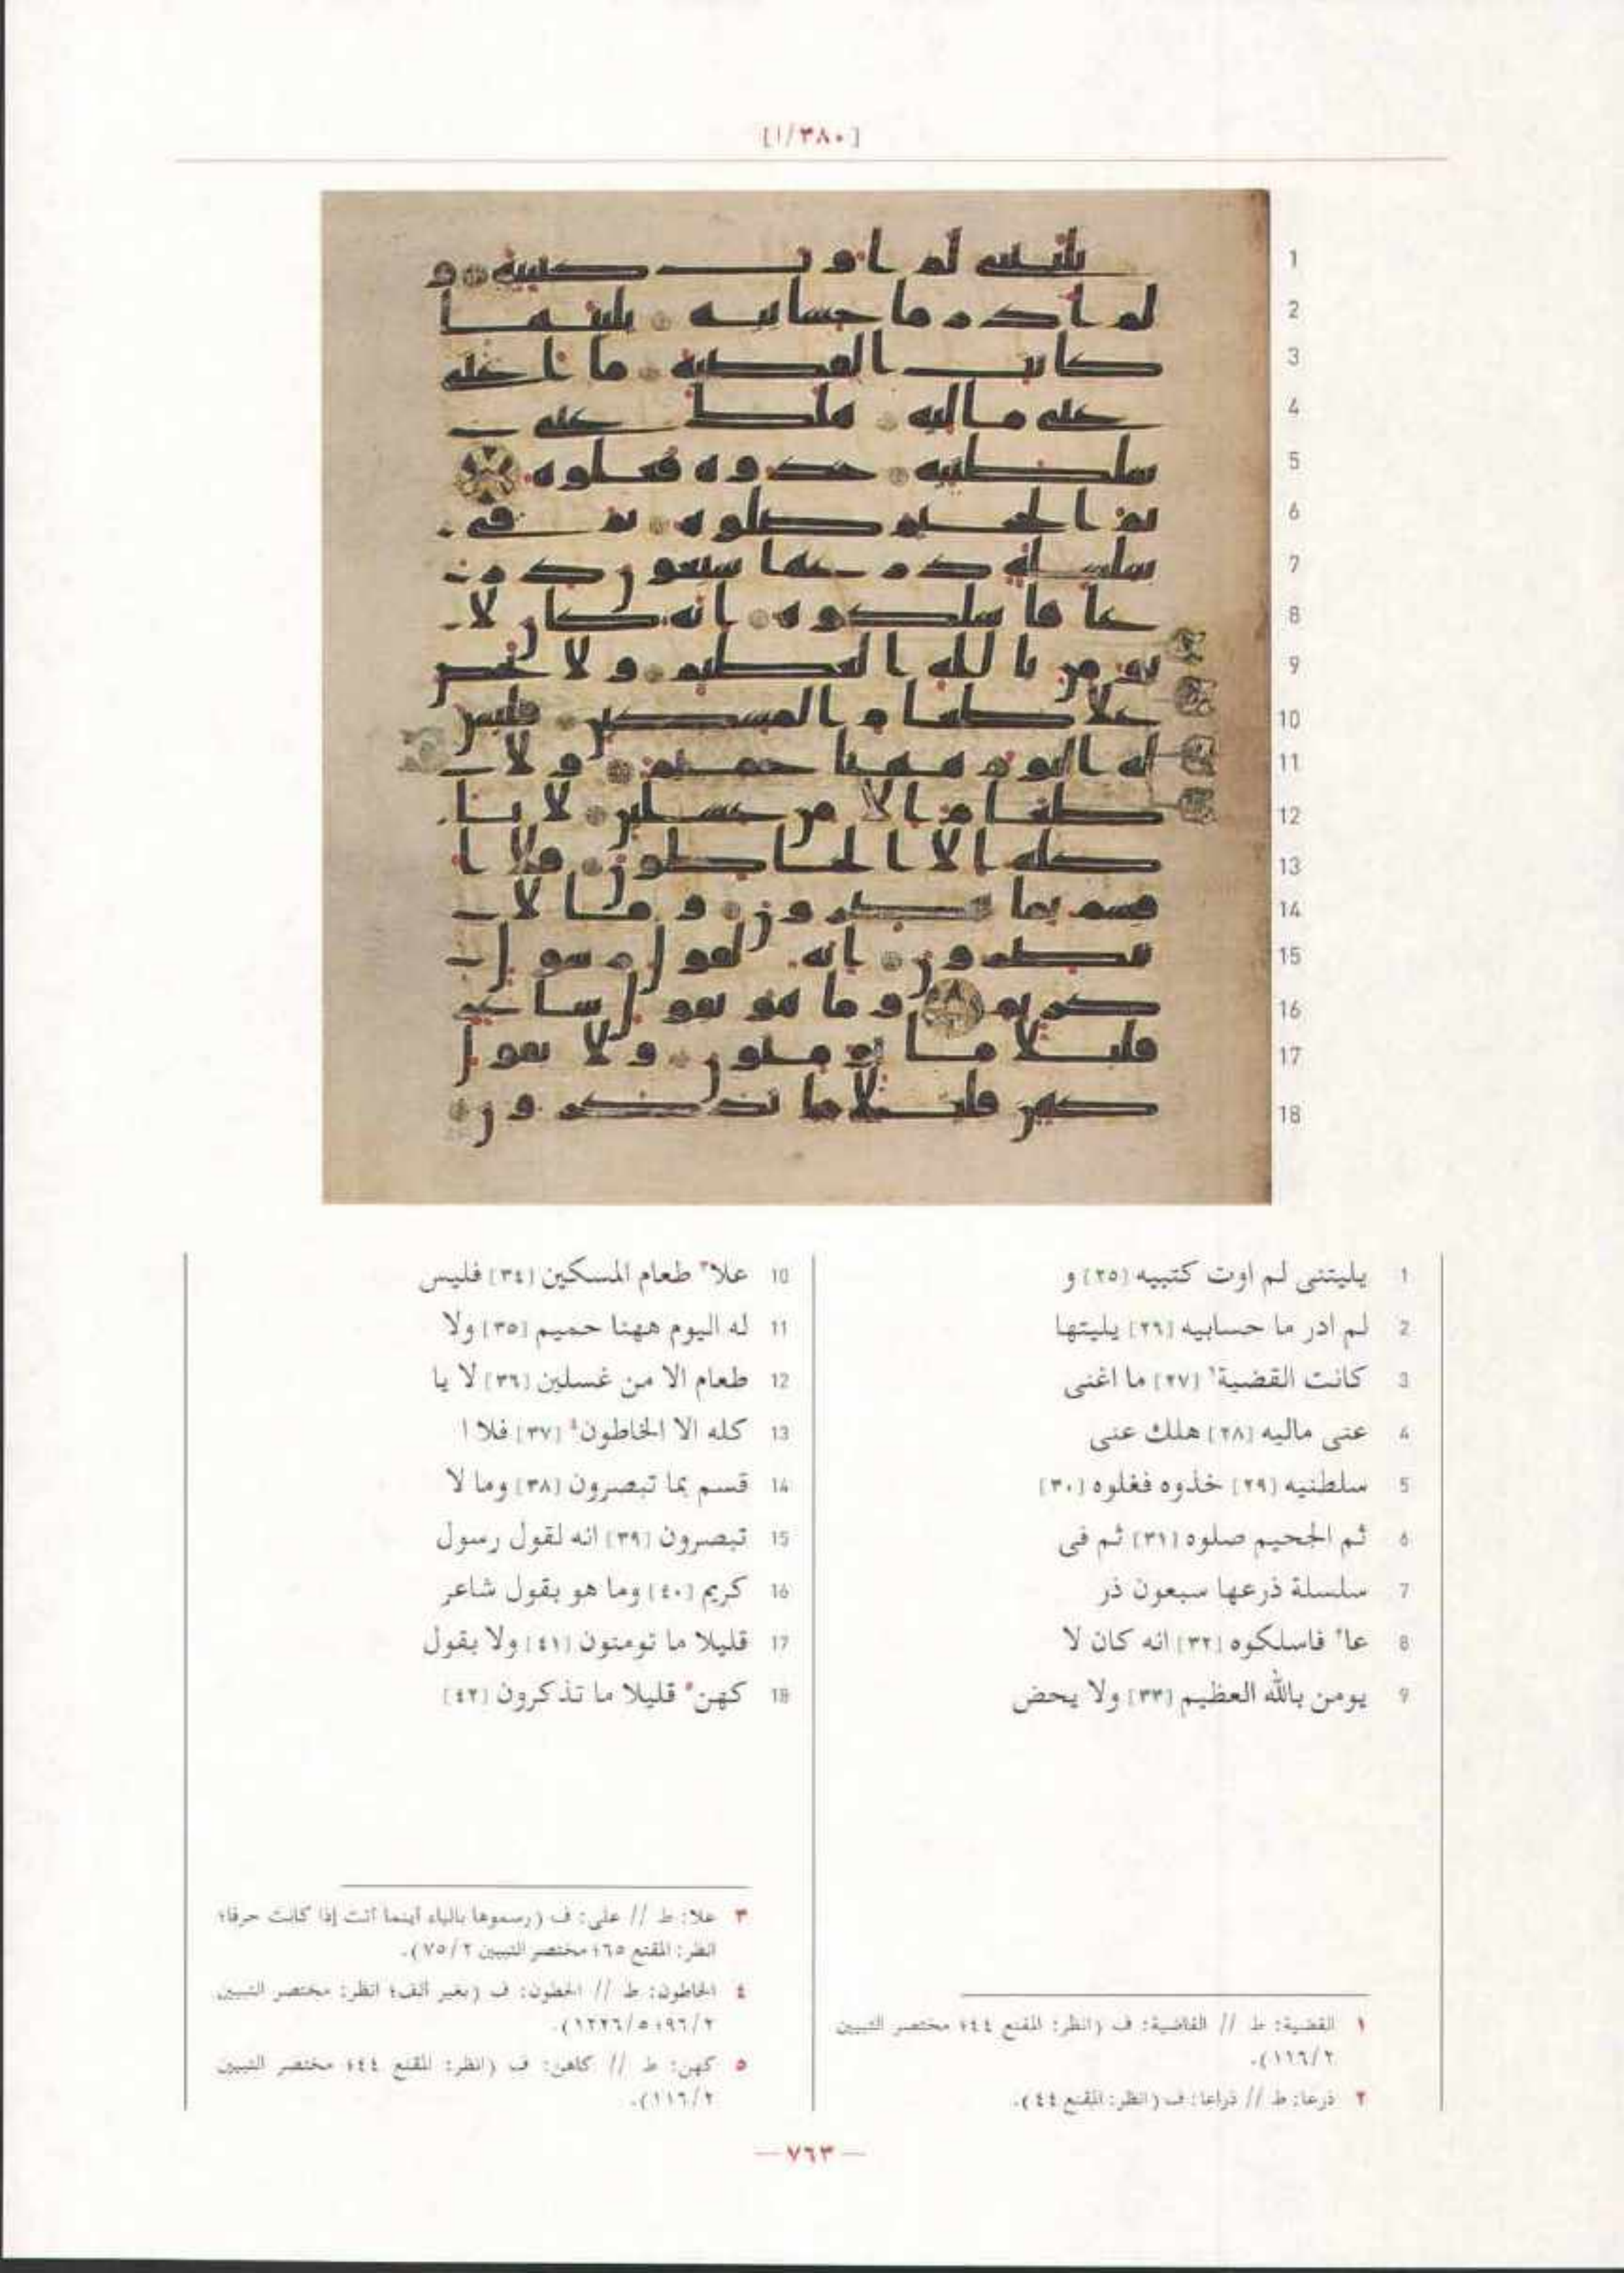 [٣٨٠/ا]
1 يليتنى لم اوت كتبيه [٢٥] و
2 لم ادر ما حسابيه [٢٦] يليتها
3 كانت القضية١ [٢٧] ما اغنى
4 عنى ماليه [٢٨] هلك عنى
5 سلطنيه [٢٩] خذوه فغلوه [٣٠]
6 ثم الجحيم صلوه [٣١] ثم فى
7 سلسلة ذرعها سبعون ذر
8 عا٢ فاسلكوه [٣٢] انه كان لا
9 يومن بالله العظيم [٣٣] ولا يحض
10 علا٣ طعام المسكين [٣٤] فليس
11 له اليوم ههنا حميم [٣٥] ولا
12 طعام الا من غسلين [٣٦] لا يا
13 كله الا الخاطون٤ [٣٧] فلا ا
14 قسم بما تبصرون [٣٨] وما لا
15 تبصرون [٣٩] انه لقول رسول
16 كريم [٤٠] وما هو بقول شاعر
17 قليلا ما تومنون [٤١] ولا بقول
18 كهن٥ قليلا ما تذكرون [٤٢]
١ القضية: ط // القاضية: ف (انظر: المقنع ٤٤؛ مختصر التبيين
١١٦/٢).
٢ ذرعا: ط // ذراعا: ف (انظر: المقنع ٤٤).
٣ علا: ط // على: ف (رسموها بالياء أينما أتت إذا كانت حرفا؛
انظر: المقنع ٦٥؛ مختصر التبيين ٧٥/٢).
٤ الخاطون: ط // الخطون: ف (بغير ألف؛ انظر: مختصر التبيين
٩٦/٢؛ ١٢٢٦/٥).
٥ كهن: ط // كاهن: ف (انظر: المقنع ٤٤؛ مختصر التبيين
١١٦/٢).
— ٧٦٣ —